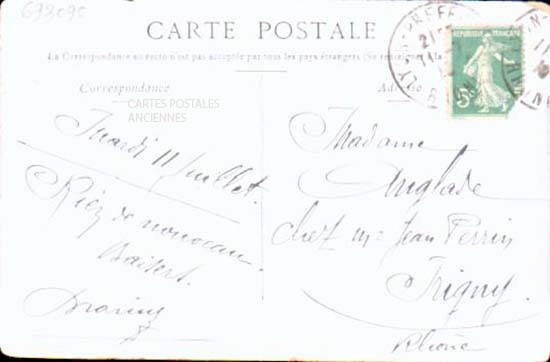 693095
CARTE POSTALE
La Correspondance au recto n'est pas acceptée par tous les pays étrangers (Se renseigner à la
Correspondance
Adresse
CARTES POSTALES
ANCIENNES
REPUBLIQUE FRANÇAISE
5c
Mardi 11 Juillet.
Rien de nouveau.
Baisers.
Madame
Anglade
chez Mr Jean Perrin
Irigny.
Rhône